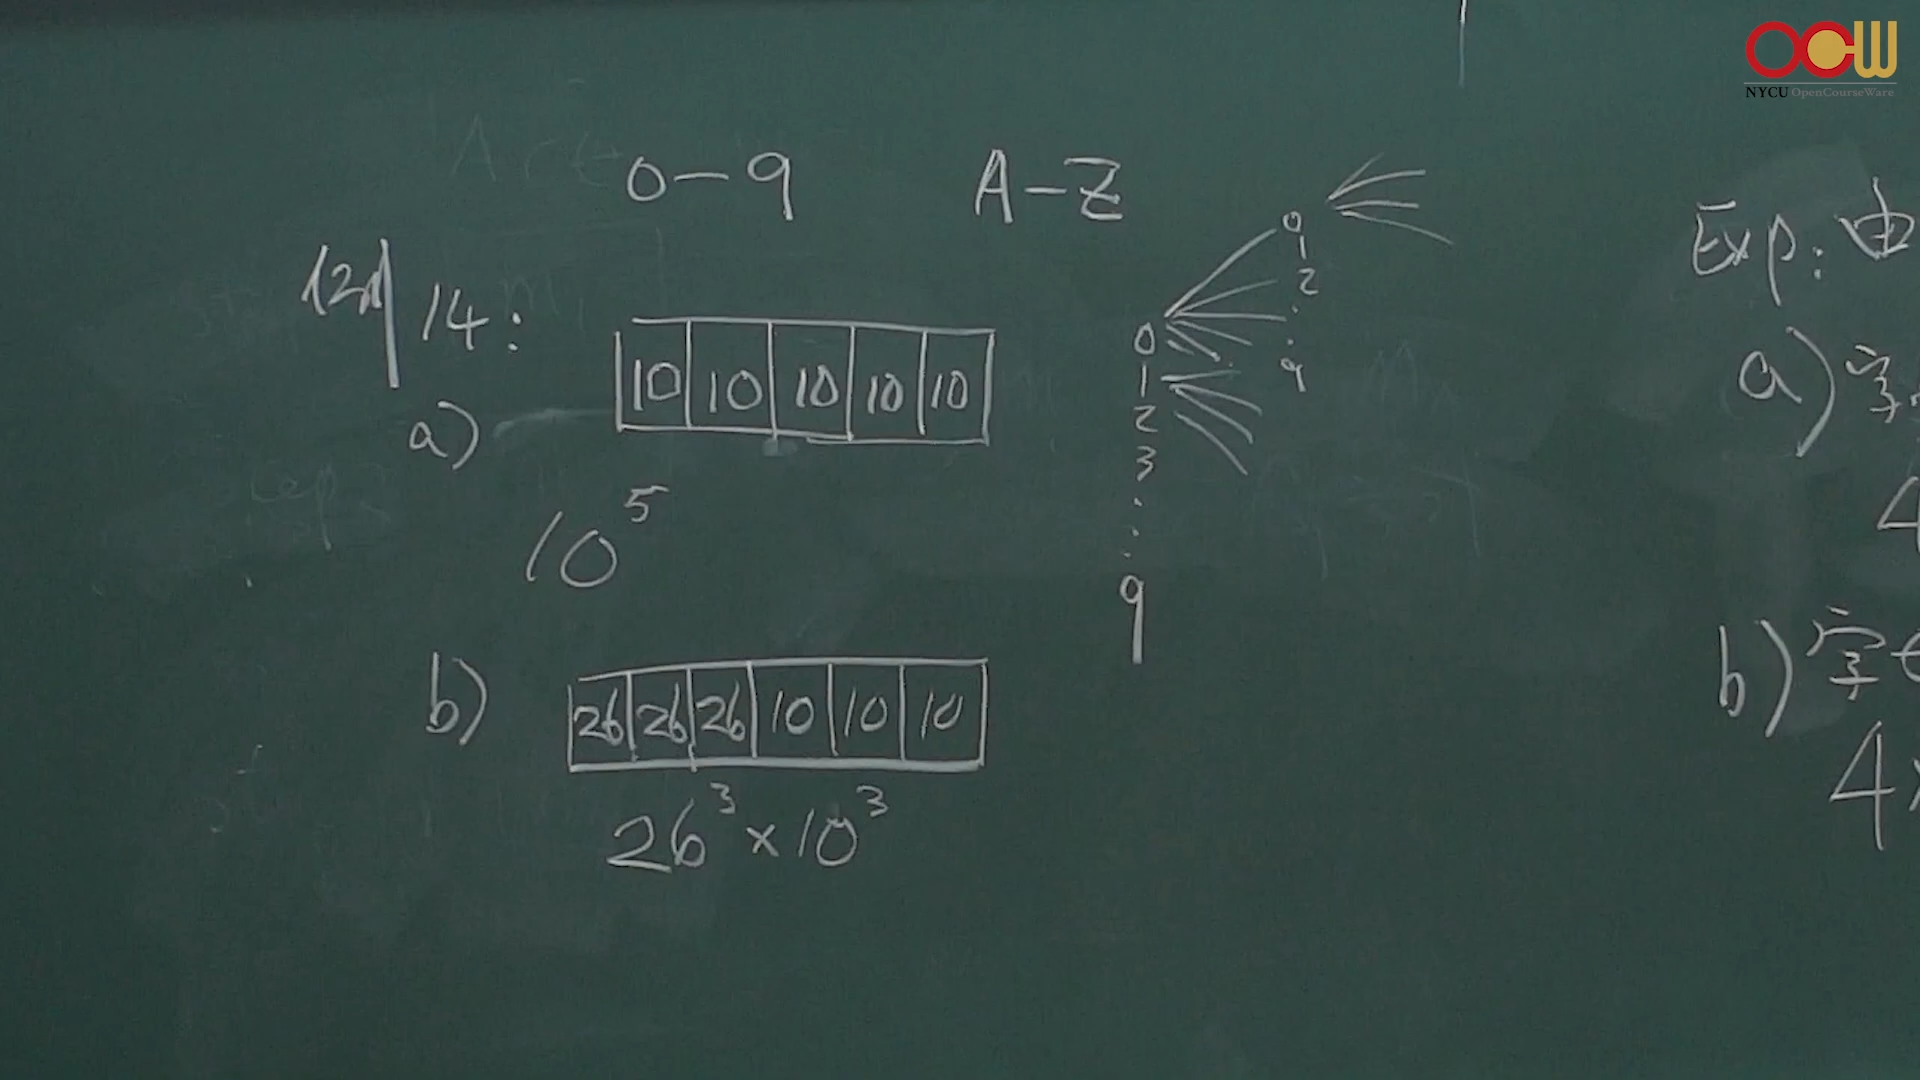 OCW
NYCU OpenCourseWare
0-9 A-Z
例 14:
a)
10 10 10 10 10
10⁵
b)
26 26 26 10 10 10
26³×10³
0
1
2
3
.
.
.
9
0
1
2
.
.
9
Exp: 由
a) 字
4
b) 字
4×